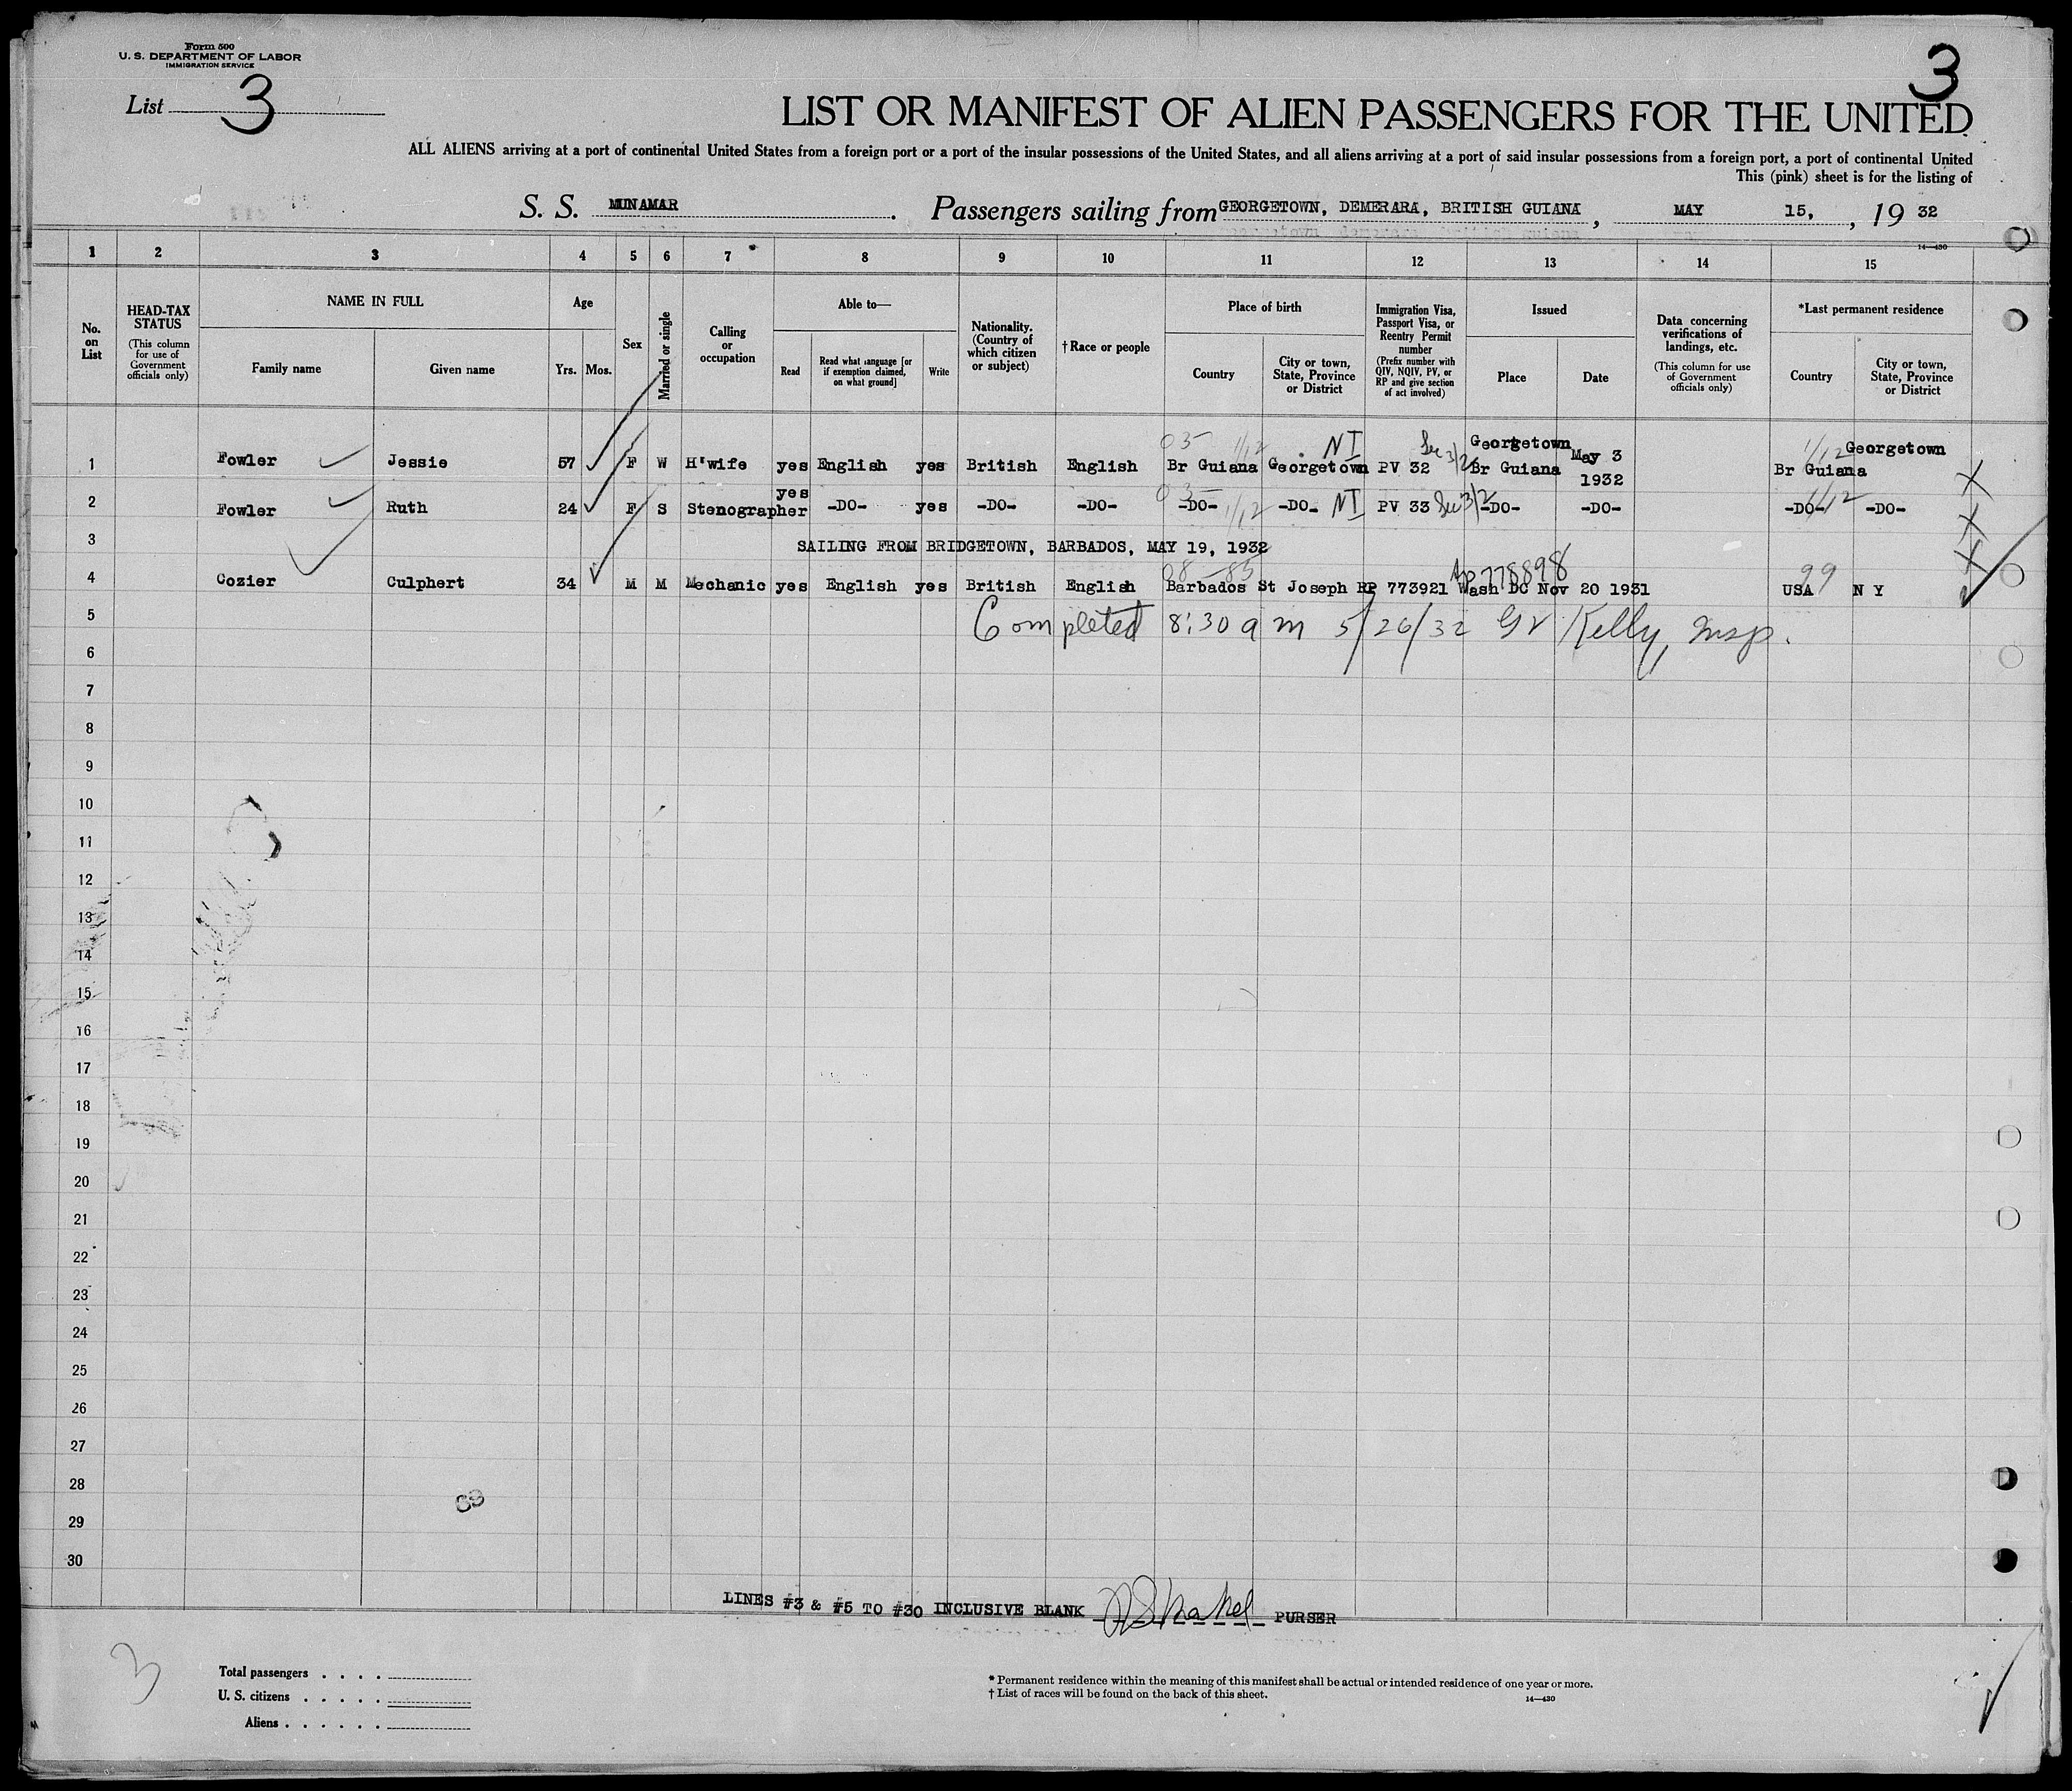 Form 500
U. S. DEPARTMENT OF LABOR
IMMIGRATION SERVICE
3
List 3
LIST OR MANIFEST OF ALIEN PASSENGERS FOR THE UNITED
ALL ALIENS arriving at a port of continental United States from a foreign port or a port of the insular possessions of the United States, and all aliens arriving at a port of said insular possessions from a foreign port, a port of continental United
This (pink) sheet is for the listing of
S. S. MUNAMAR. Passengers sailing from GEORGETOWN, DEMERARA, BRITISH GUIANA, MAY 15, , 19 32
14—430
1 2 3 4 5 6 7 8 9 10 11 12 13 14 15
No. on List
HEAD-TAX STATUS
(This column for use of Government officials only)
NAME IN FULL
Family name Given name
Age
Yrs. Mos.
Sex
Married or single
Calling or occupation
Able to—
Read
Read what language [or if exemption claimed, on what ground]
Write
Nationality. (Country of which citizen or subject)
†Race or people
Place of birth
Country
City or town, State, Province or District
Immigration Visa, Passport Visa, or Reentry Permit number
(Prefix number with QIV, NQIV, PV, or RP and give section of act involved)
Issued
Place Date
Data concerning verifications of landings, etc.
(This column for use of Government officials only)
*Last permanent residence
Country
City or town, State, Province or District
03 1/12 NI Sec 3/2 Georgetown 1/12 Georgetown
1 Fowler Jessie 57 F W H'wife yes English yes British English Br Guiana Georgetown PV 32 Br Guiana May 3 1932 Br Guiana
2 Fowler Ruth 24 F S Stenographer yes -DO- yes -DO- -DO- 03 -DO- 1/12 -DO- NI PV 33 Sec 3/2 -DO- -DO- -DO- 1/12 -DO-
3 SAILING FROM BRIDGETOWN, BARBADOS, MAY 19, 1932
08-85 778898 99
4 Cozier Culphert 34 M M Mechanic yes English yes British English Barbados St Joseph RP 773921 Wash DC Nov 20 1931 USA N Y
5 Completed 8:30 a m 5/26/32 Kelly, Insp.
6
7
8
9
10
11
12
13
14
15
16
17
18
19
20
21
22
23
24
25
26
27
28
29
30
LINES #3 & #5 TO #30 INCLUSIVE BLANK PURSER
3
Total passengers . . . .
U. S. citizens . . . . .
Aliens . . . . . .
* Permanent residence within the meaning of this manifest shall be actual or intended residence of one year or more.
† List of races will be found on the back of this sheet.
14—430